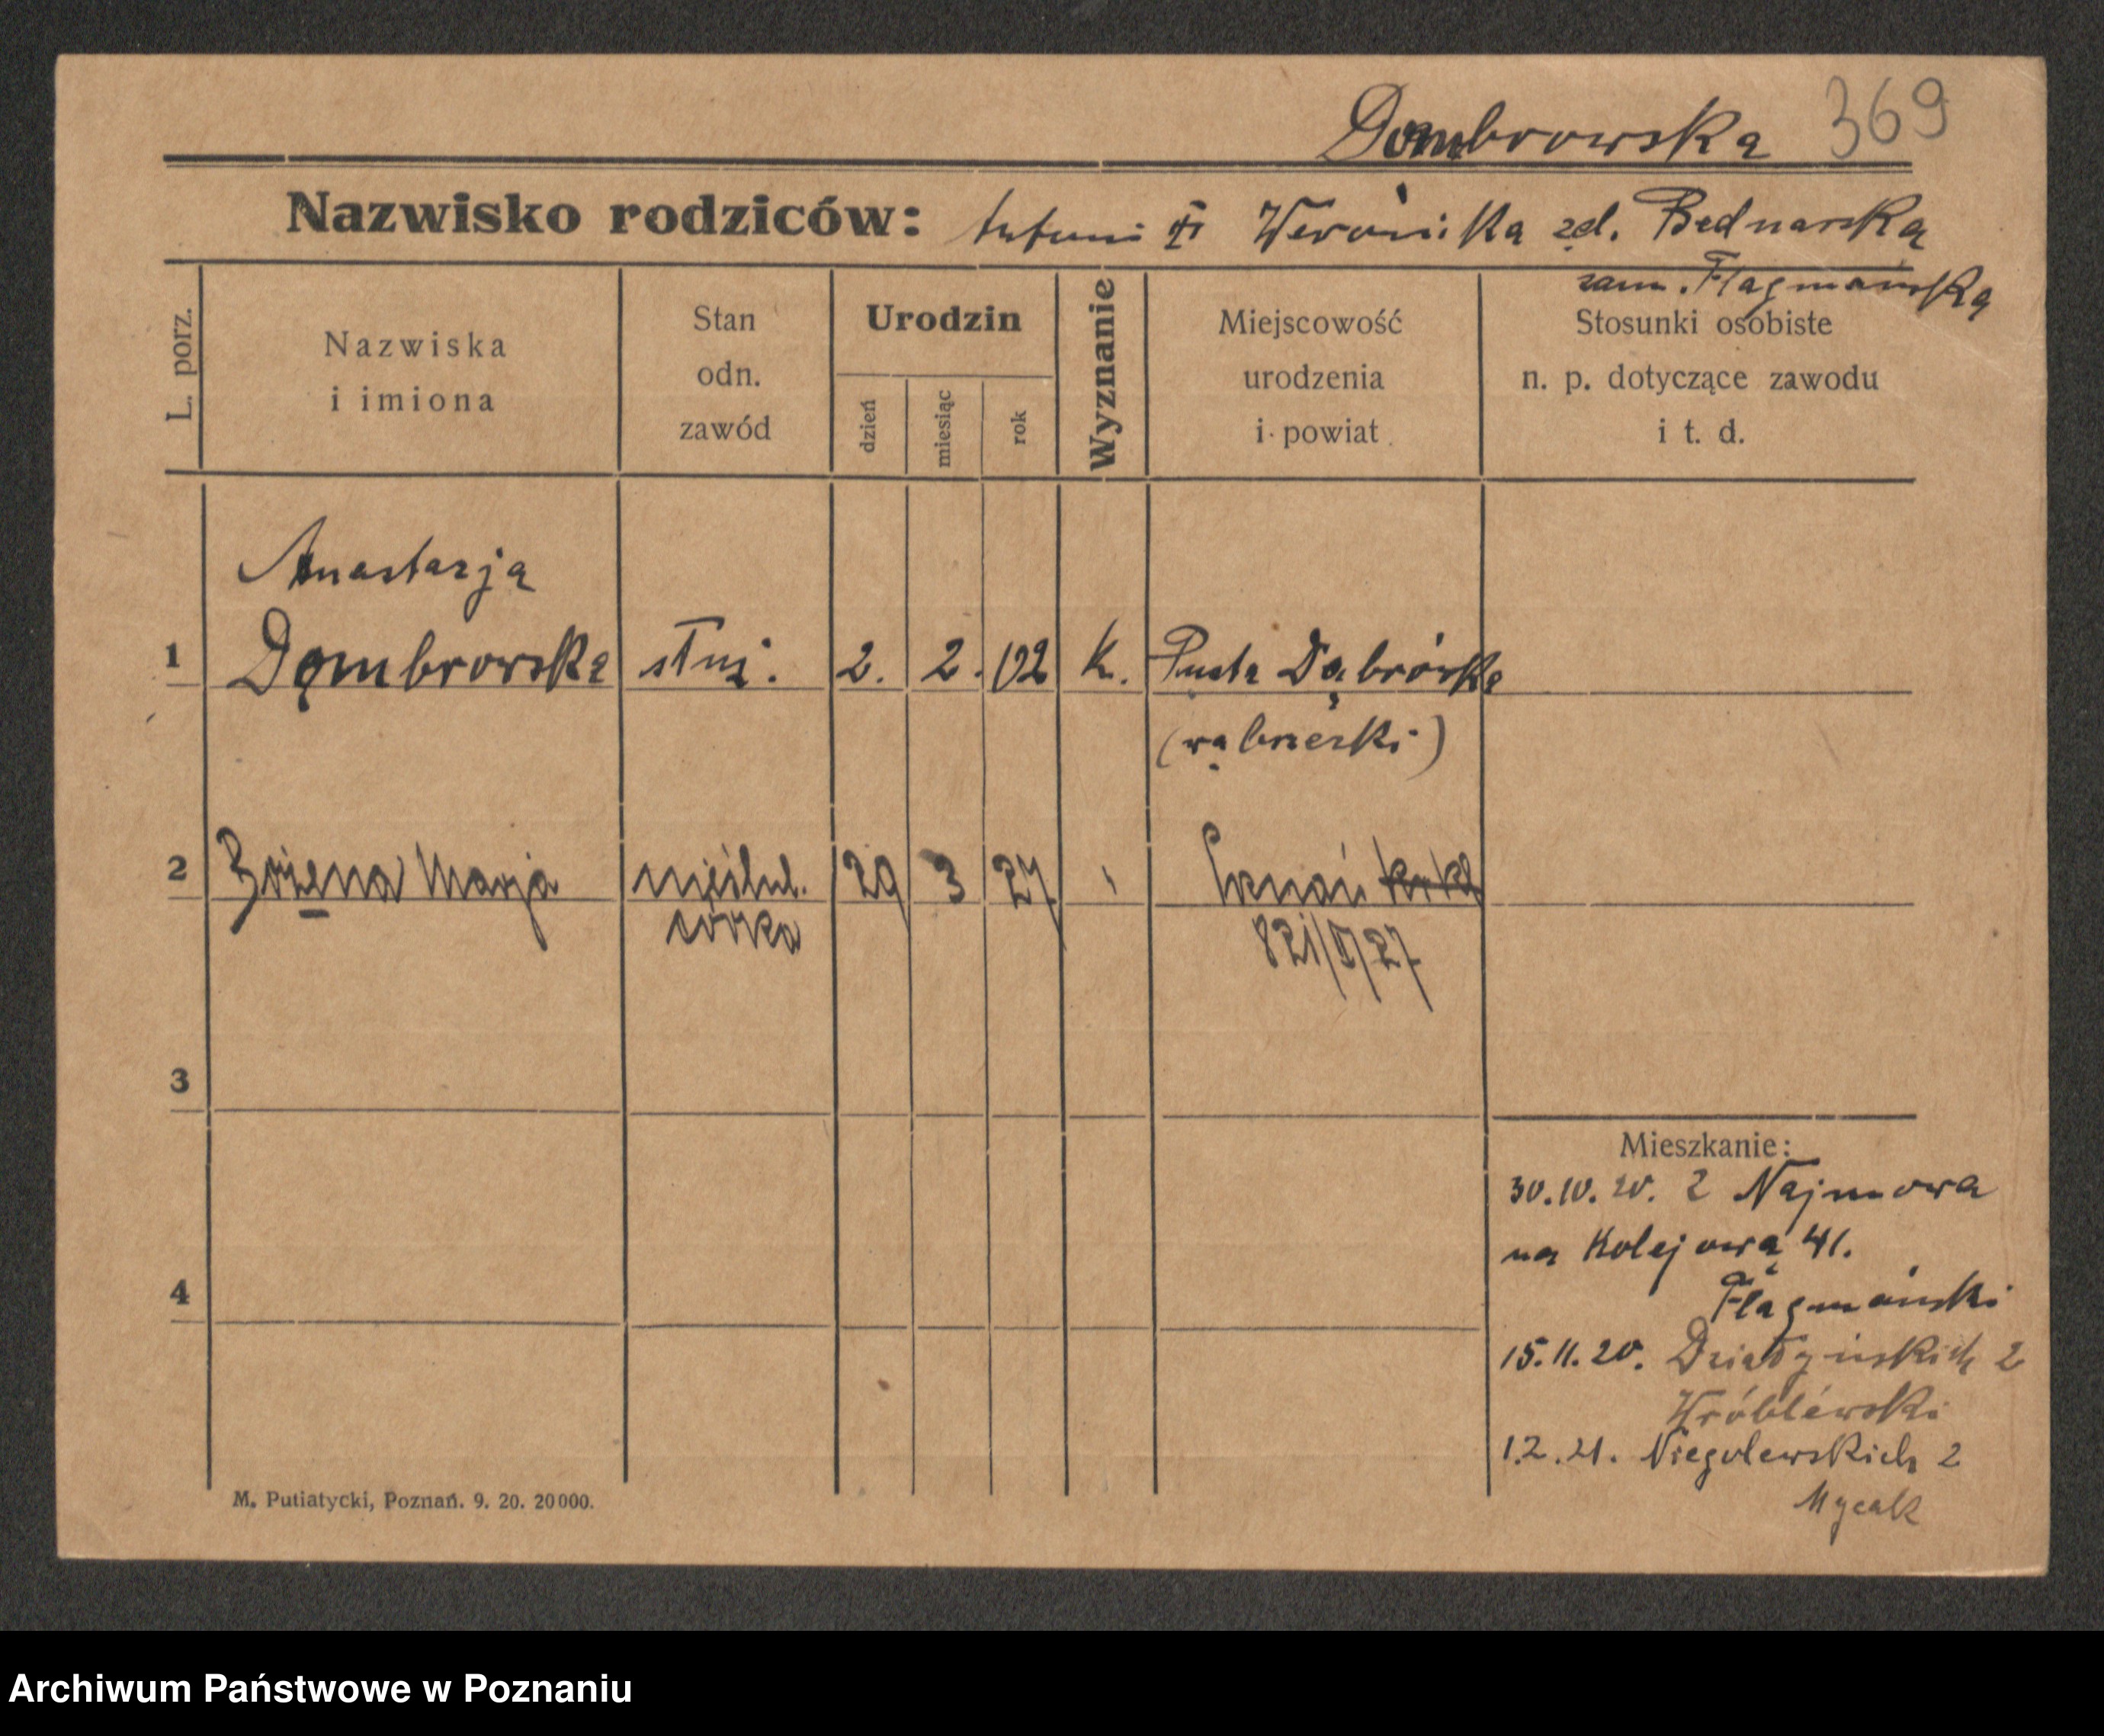 Dombrowska 369
Nazwisko rodziców: Antoni † Weronika zd. Bednarska
zam. Flagmańska
L. porz.
Nazwiska
i imiona
Stan
odn.
zawód
Urodzin
dzień
miesiąc
rok
Wyznanie
Miejscowość
urodzenia
i powiat
Stosunki osobiste
n. p. dotyczące zawodu
i t. d.
Anastazja
1 Dombrowska służ. 2. 2. 02 k. Pusta Dąbrówka
(wąbrzeski)
2 Bożena Marja nieślub. 29 3 27 Poznań
córka 821/V/27
3
4
Mieszkanie:
30.10.20. 2 Najmowa
na Kolejową 41.
Flagmański
15.11.20. Działyńskich 2
Wróblewski
1.2.21. Niegolewskich 2
M. Putiatycki, Poznań. 9. 20. 20000.
Archiwum Państwowe w Poznaniu